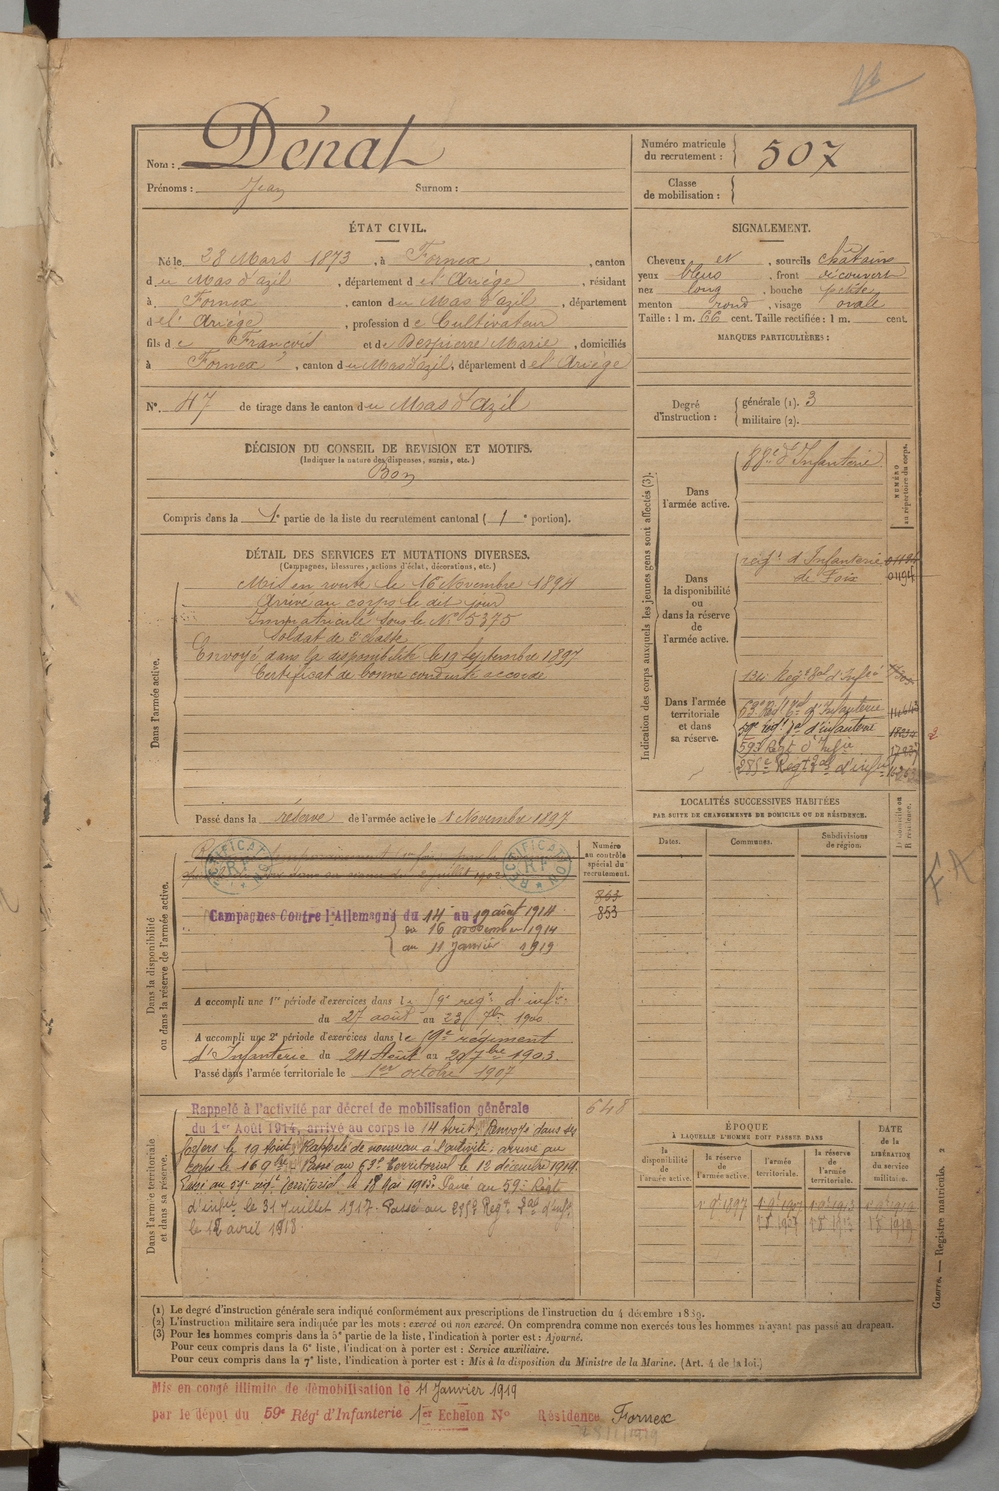 Nom : Dénat
Prénoms : Jean Surnom :
Numéro matricule du recrutement : 507
Classe de mobilisation :
ÉTAT CIVIL.
Né le 28 Mars 1873, à Fornex, canton
du Mas d'azil, département de l'Ariège, résidant
à Fornex, canton du Mas d'azil, département
de l'Ariège, profession de Cultivateur
fils de François et de Despierre Marie, domiciliés
à Fornex, canton du Mas d'azil, département de l'Ariège
N° 47 de tirage dans le canton du Mas d'azil
DÉCISION DU CONSEIL DE REVISION ET MOTIFS.
(Indiquer la nature des dispenses, sursis, etc.)
Bon
Compris dans la 1e partie de la liste du recrutement cantonal ( 1e portion).
SIGNALEMENT.
Cheveux et , sourcils châtains
yeux bleus , front découvert
nez long , bouche petite
menton rond , visage ovale
Taille : 1 m. 66 cent. Taille rectifiée : 1 m. cent.
MARQUES PARTICULIÈRES :
Degré d'instruction : générale (1). 3
militaire (2).
DÉTAIL DES SERVICES ET MUTATIONS DIVERSES.
(Campagnes, blessures, actions d'éclat, décorations, etc.)
Dans l'armée active.
Mis en route le 16 Novembre 1894
Arrivé au corps le dit jour
Immatriculé sous le N° 5375
Soldat de 2e classe
Envoyé dans la disponibilité le 19 septembre 1897
Certificat de bonne conduite accordé
Passé dans la réserve de l'armée active le 1 Novembre 1897
Indication des corps auxquels les jeunes gens sont affectés (3).
NUMÉRO au répertoire du corps.
Dans l'armée active.
88e d'Infanterie
Dans la disponibilité ou dans la réserve de l'armée active.
régt d'Infanterie
de Foix
01194
Dans l'armée territoriale et dans sa réserve.
134e Regt d'Infie
63e Regt d'Infanterie
régt d'infanterie
59e Regt d'Infie
Regt d'infie
LOCALITÉS SUCCESSIVES HABITÉES
PAR SUITE DE CHANGEMENTS DE DOMICILE OU DE RÉSIDENCE.
Dates. Communes. Subdivisions de région. D. domicile ou R. résidence.
Dans la disponibilité ou dans la réserve de l'armée active.
RECTIFICATION RF
RECTIFICATION RF
Numéro au contrôle spécial du recrutement.
863
853
Campagnes Contre l'Allemagne du 14 au 19 août 1914
du 16 novembre 1914
au 11 Janvier 1919
A accompli une 1re période d'exercices dans le 59e régt d'infie
du 27 août au 23 7bre 1900
A accompli une 2e période d'exercices dans le 59e régiment
d'Infanterie du 24 Août au 20 7bre 1903.
Passé dans l'armée territoriale le 1er octobre 1907
Dans l'armée territoriale et dans sa réserve.
Rappelé à l'activité par décret de mobilisation générale
du 1er Août 1914, arrivé au corps le 14 août. Renvoyé dans ses
foyers le 19 Août. Rappelé de nouveau à l'activité, arrivé au
corps le 16 9bre. Passé au 63e Territorial le 12 décembre 1914.
Passé au régt Territorial le 18 Mai 1915. Passé au 59e Régt
d'infie le 31 Juillet 1917. Passé au Regt d'infie
le 12 avril 1918
648
ÉPOQUE
À LAQUELLE L'HOMME DOIT PASSER DANS
la disponibilité de l'armée active.
la réserve de l'armée active.
l'armée territoriale.
la réserve de l'armée territoriale.
DATE de la LIBÉRATION du service militaire.
1 9e 1897
FA
(1) Le degré d'instruction générale sera indiqué conformément aux prescriptions de l'instruction du 4 décembre 1889.
(2) L'instruction militaire sera indiquée par les mots : exercé ou non exercé. On comprendra comme non exercés tous les hommes n'ayant pas passé au drapeau.
(3) Pour les hommes compris dans la 5e partie de la liste, l'indication à porter est : Ajourné.
Pour ceux compris dans la 6e liste, l'indication à porter est : Service auxiliaire.
Pour ceux compris dans la 7e liste, l'indication à porter est : Mis à la disposition du Ministre de la Marine. (Art. 4 de la loi.)
Guerre. — Registre matricule. 2
Mis en congé illimité de démobilisation le 11 Janvier 1919
par le dépôt du 59e Régt d'Infanterie 1er Echelon N° Résidence Fornex